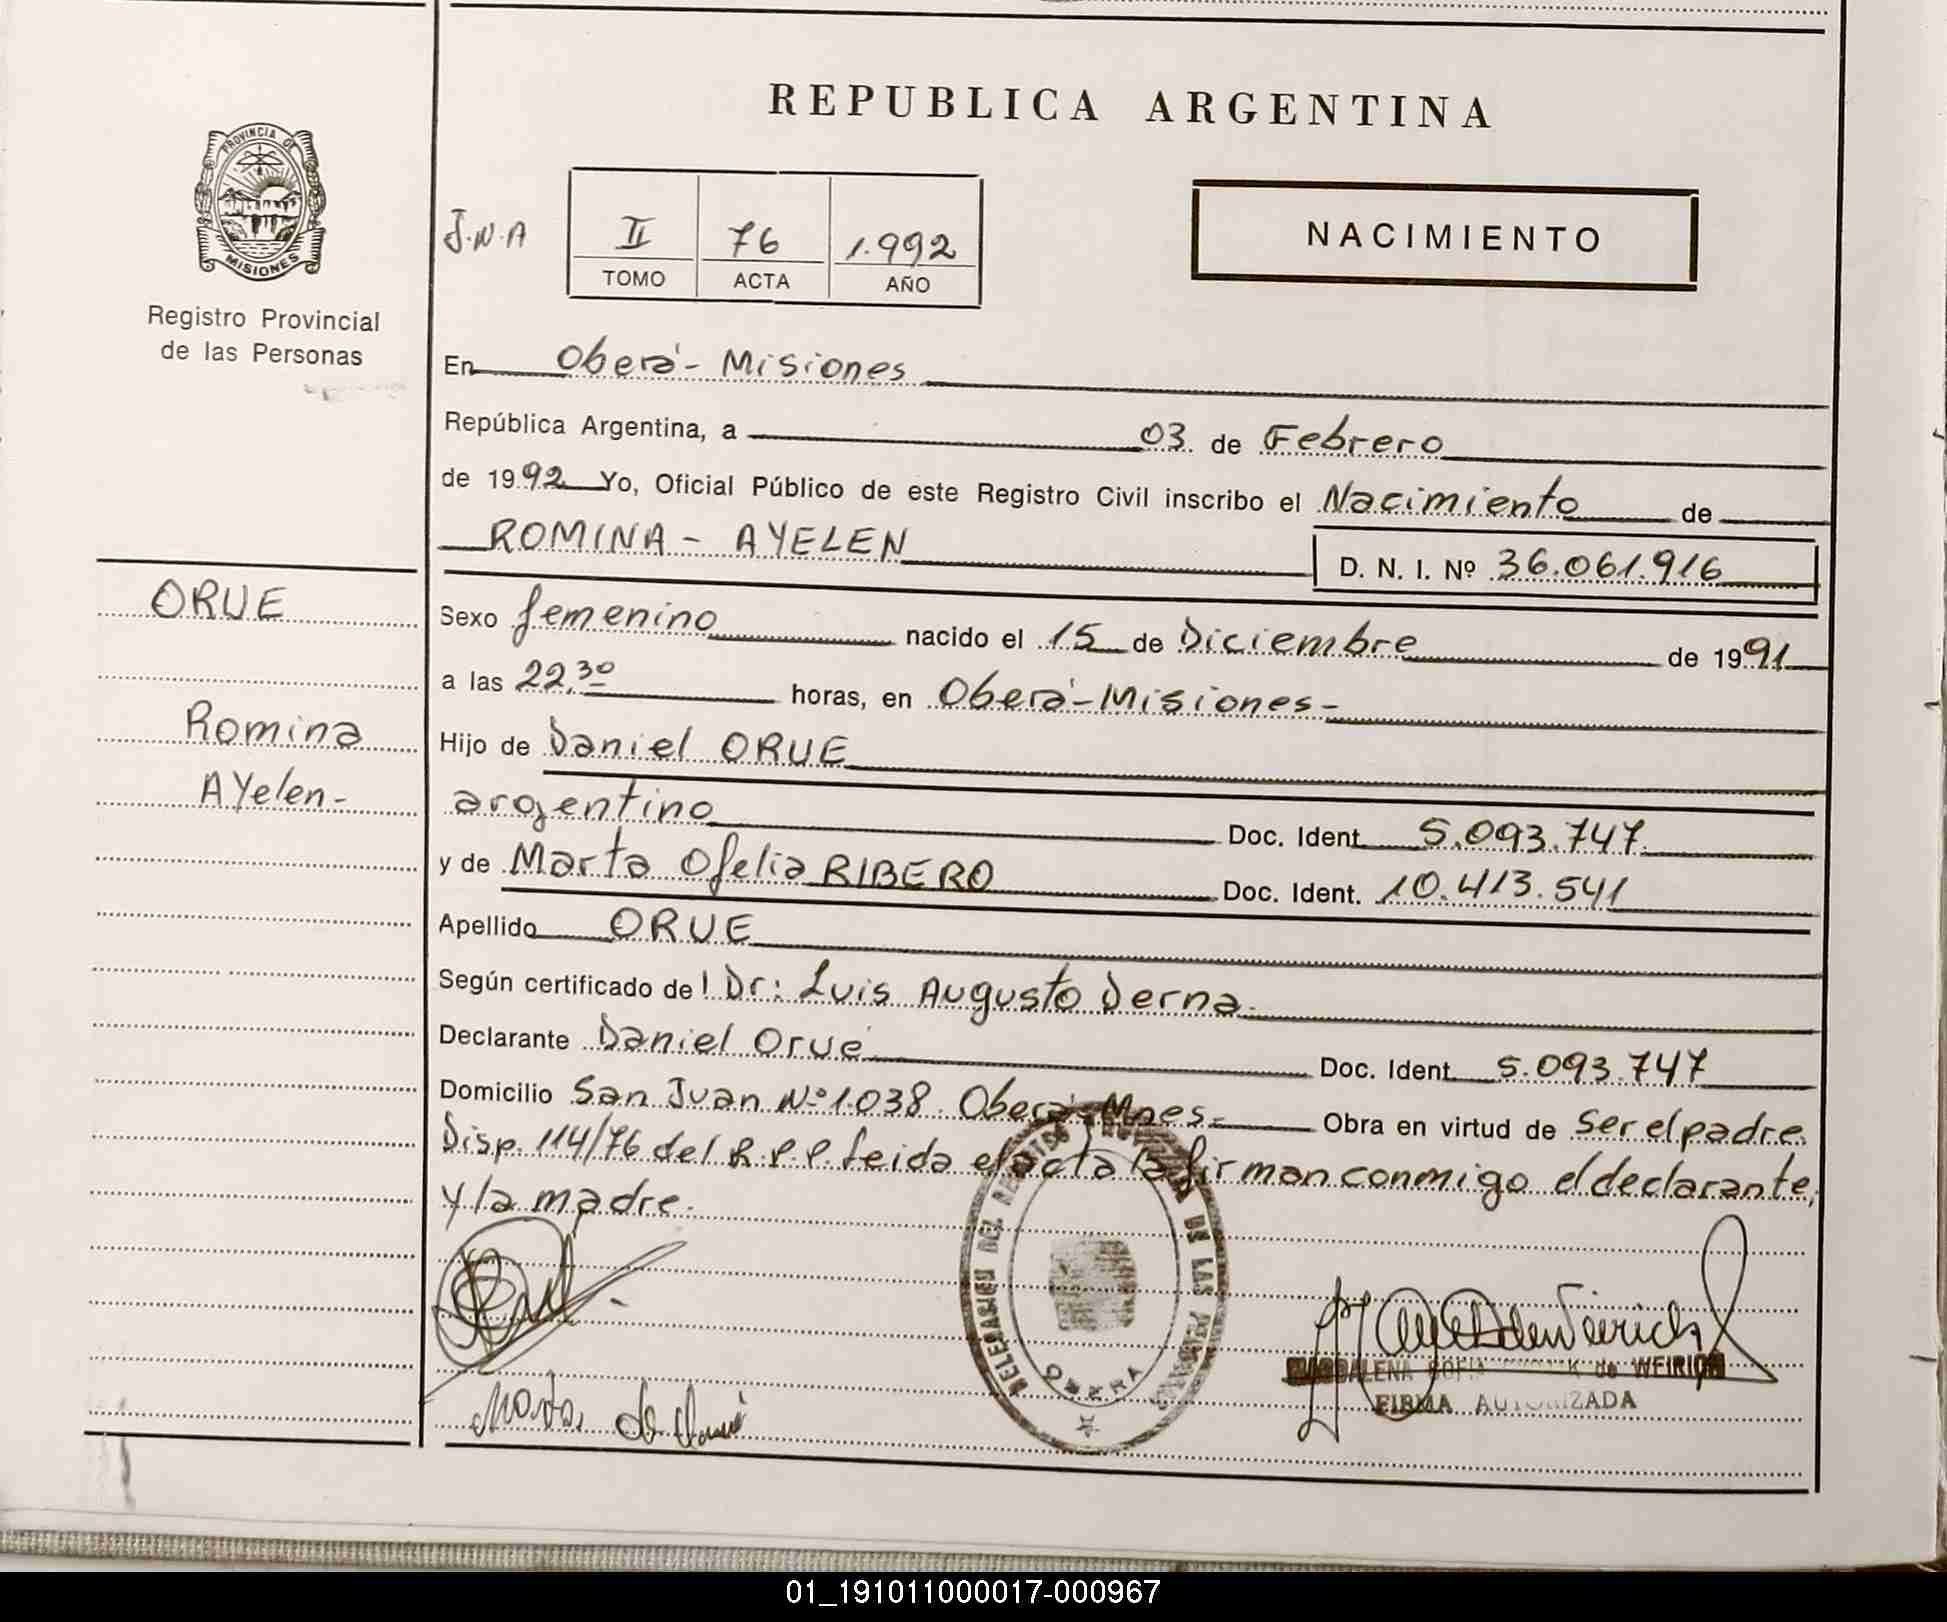 REPUBLICA ARGENTINA
PROVINCIA DE
MISIONES
Registro Provincial
de las Personas
J.N.A
II 76 1.992
TOMO ACTA AÑO
NACIMIENTO
En Oberá - Misiones
República Argentina, a 03 de Febrero
de 1992 Yo, Oficial Público de este Registro Civil inscribo el Nacimiento de
ROMINA - AYELEN D. N. I. Nº 36.061.916
ORUE
Romina
AYelen-
Sexo femenino nacido el 15 de Diciembre de 1991
a las 22,30 horas, en Oberá-Misiones-
Hijo de Daniel ORUE
argentino Doc. Ident. 5.093.747
y de Marta Ofelia RIBERO Doc. Ident. 10.413.541
Apellido ORUE
Según certificado del Dr: Luis Augusto Derna.
Declarante Daniel Orué Doc. Ident. 5.093.747
Domicilio San Juan Nº 1.038 Oberá-Mnes- Obra en virtud de Ser el padre.
Disp. 114/76 del R.P.P. leida el acta la firman conmigo el declarante,
y la madre.
DE LAS
OBERA
Marta de Orué
MAGDALENA de WEIRICH
FIRMA AUTORIZADA
01_191011000017-000967